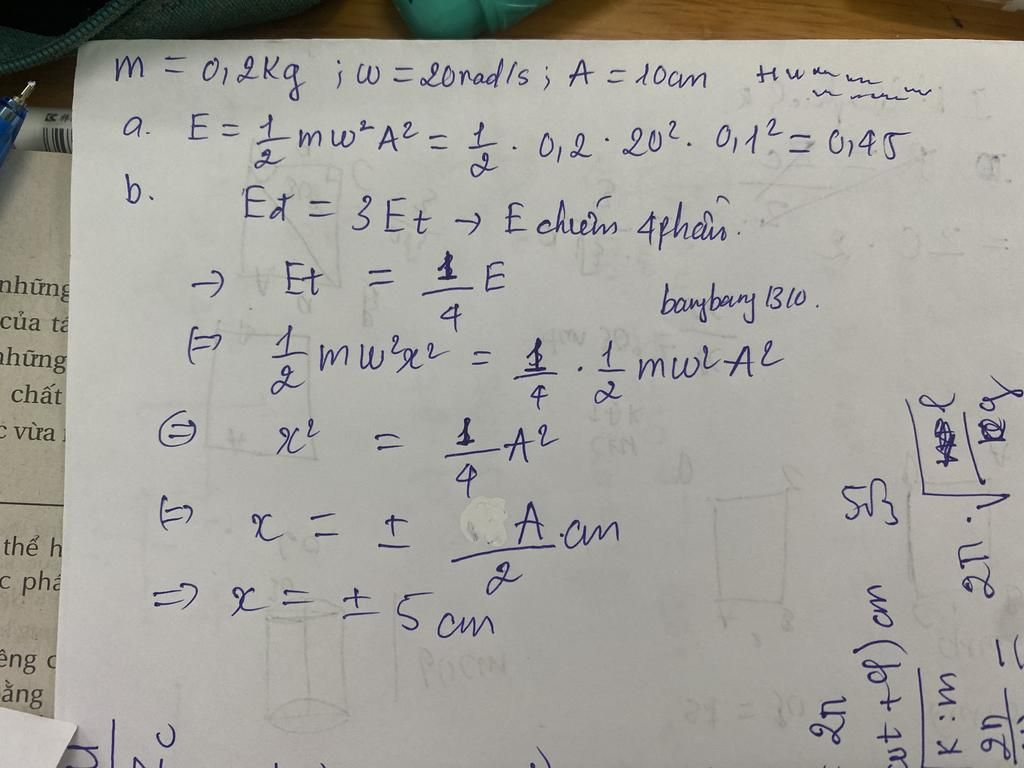 m = 0,2Kg ; ω = 20rad/s ; A = 10cm
a. E = 1/2 mω²A² = 1/2 . 0,2 . 20² . 0,1² = 0,4J
b. Eđ = 3Et → E chiếm 4 phần.
→ Et = 1/4 E
bangbang1310.
⇔ 1/2 mω²x² = 1/4 . 1/2 mω²A²
⇔ x² = 1/4 A²
⇔ x = ± A/2 . cm
⇒ x = ± 5 cm
những
của tá
những
chất
c vừa
thể h
c phá
êng c
ằng
5√3
ωt + φ) cm
k : m
2π